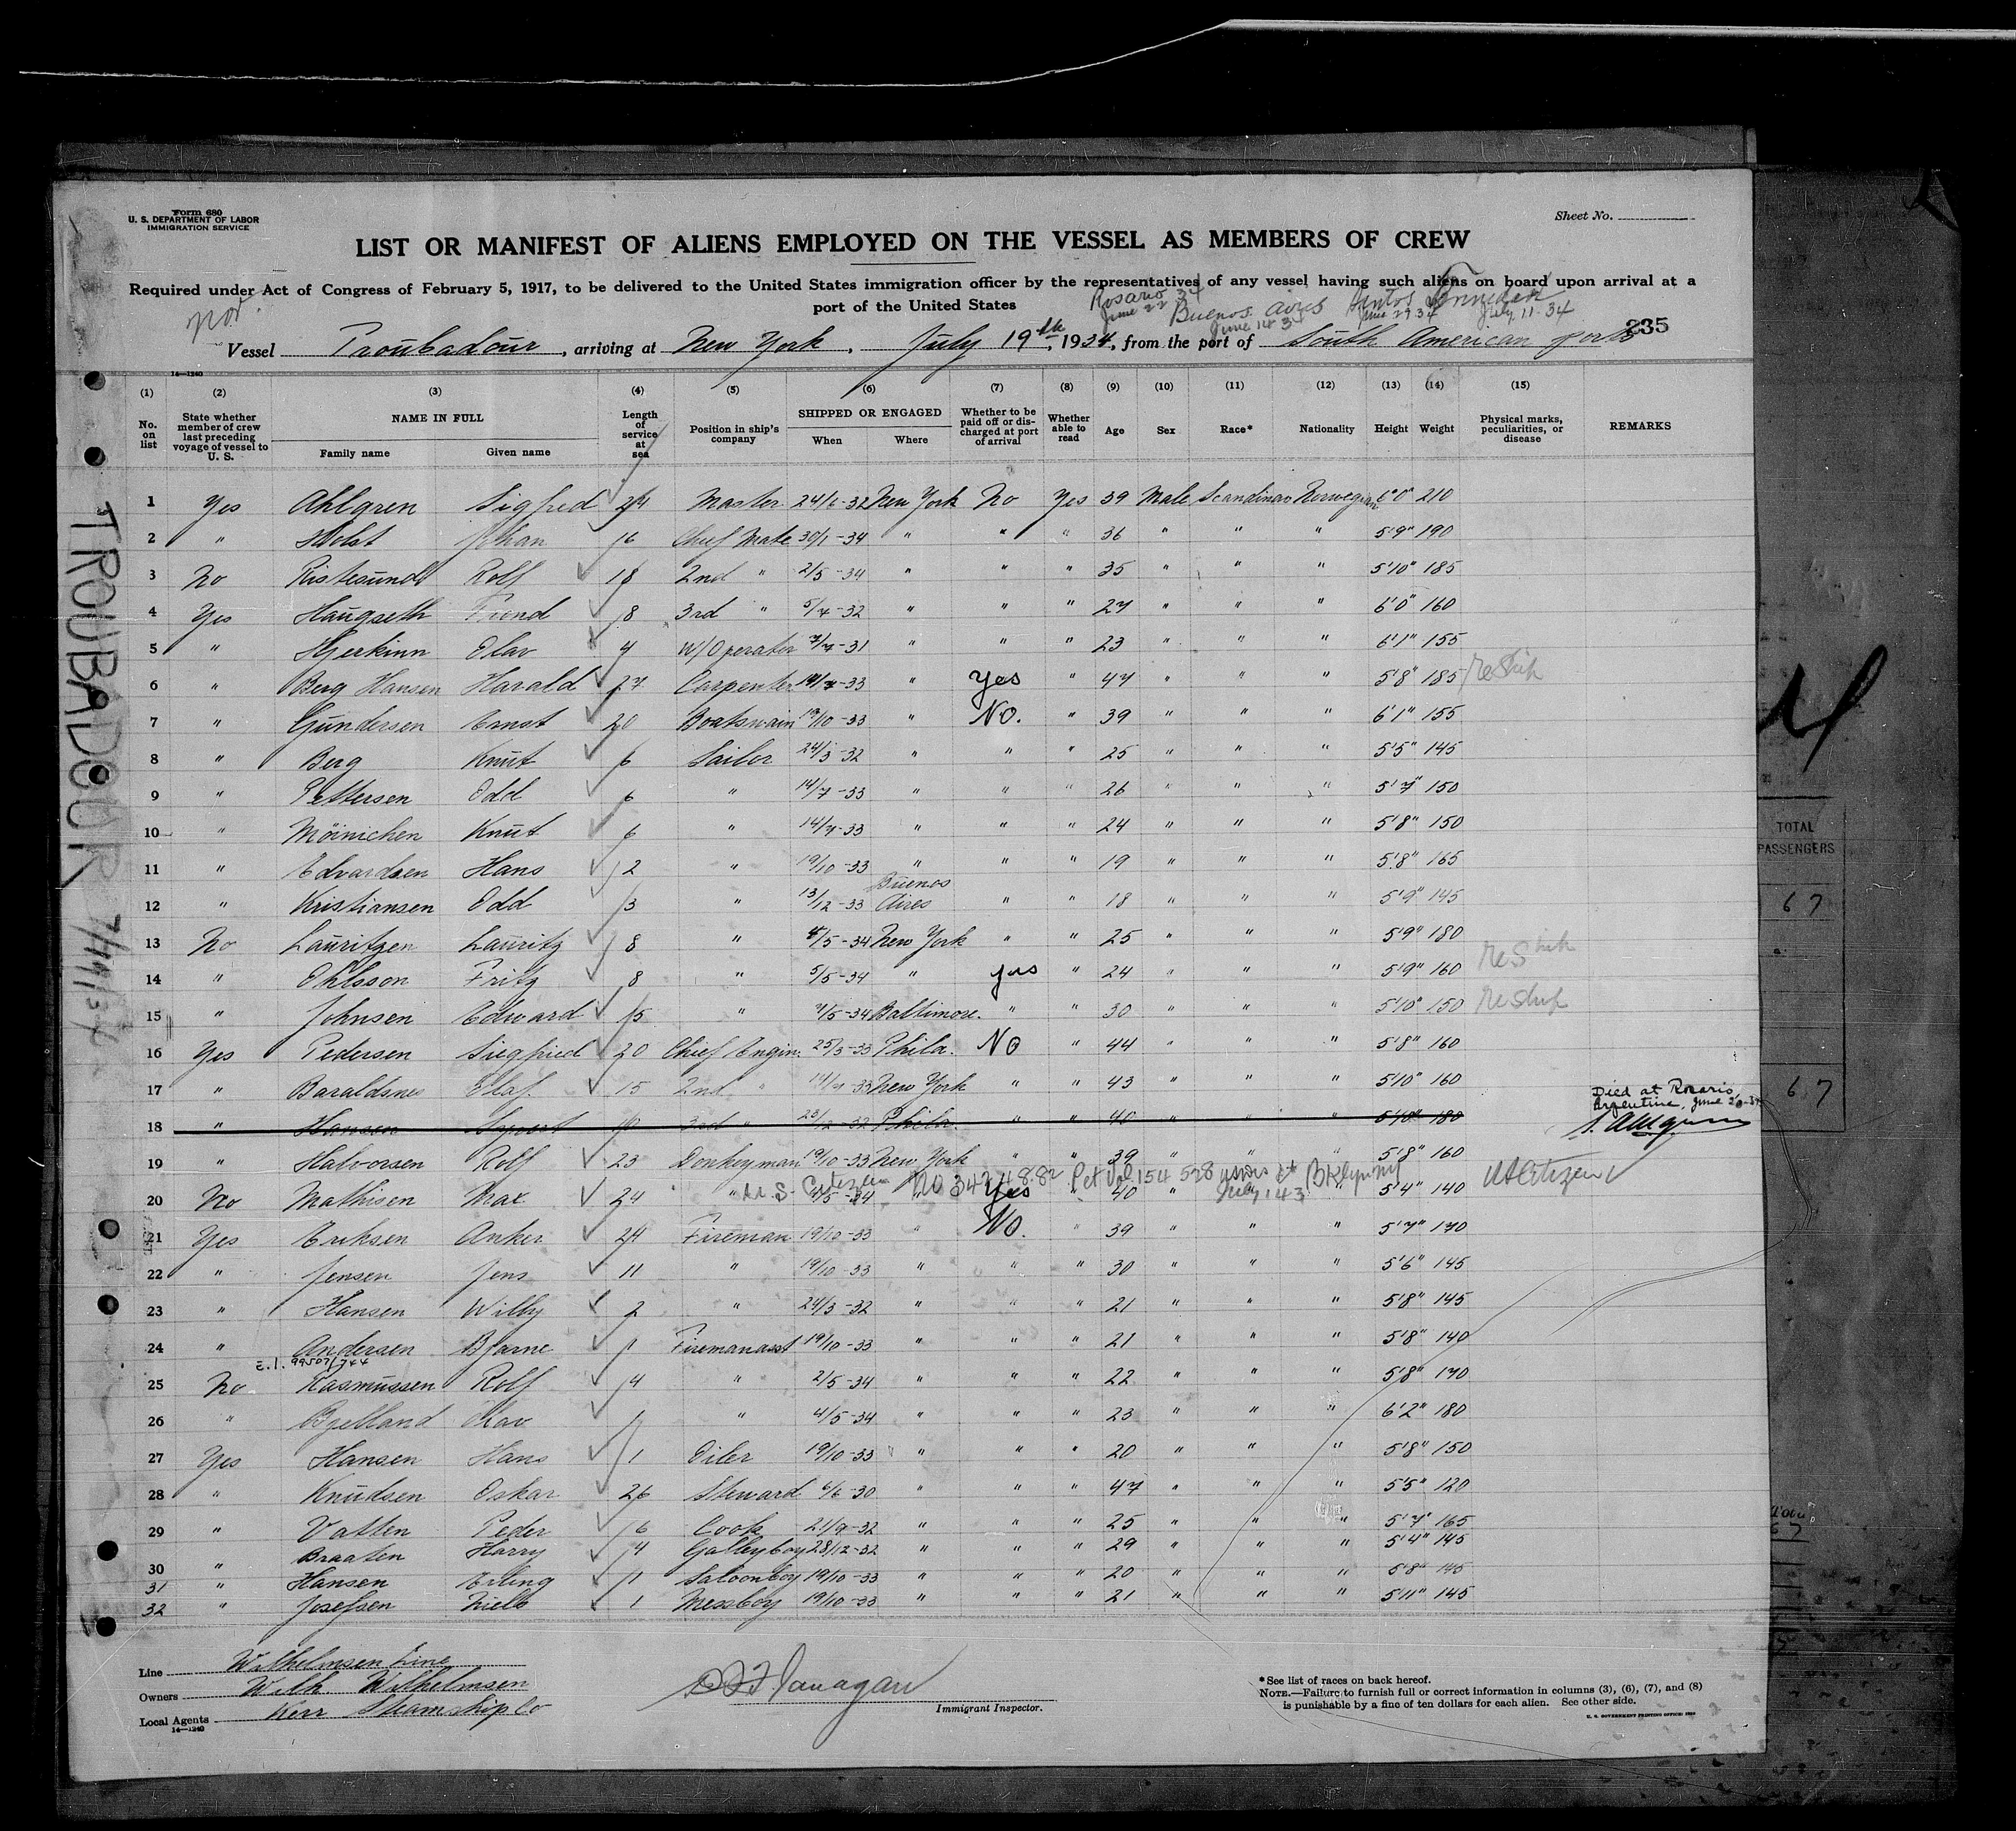 Form 680
U. S. DEPARTMENT OF LABOR
IMMIGRATION SERVICE
Sheet No.
LIST OR MANIFEST OF ALIENS EMPLOYED ON THE VESSEL AS MEMBERS OF CREW
Required under Act of Congress of February 5, 1917, to be delivered to the United States immigration officer by the representatives of any vessel having such aliens on board upon arrival at a
port of the United States
Nor.
Rosario June 22 34 Buenos Aires June 14 34 Santos June 29 34 July 11-34
235
Vessel Troubadour, arriving at New York, July 19th, 1934, from the port of South American ports
14-1240
(1) (2) (3) (4) (5) (6) (7) (8) (9) (10) (11) (12) (13) (14) (15)
No. on list
State whether member of crew last preceding voyage of vessel to U. S.
NAME IN FULL
Family name
Given name
Length of service at sea
Position in ship's company
SHIPPED OR ENGAGED
When
Where
Whether to be paid off or discharged at port of arrival
Whether able to read
Age
Sex
Race*
Nationality
Height
Weight
Physical marks, peculiarities, or disease
REMARKS
1 Yes Ahlgren Sigfred 24 Master 24/6-32 New York No Yes 39 Male Scandinav Norwegian 6'0" 210
2 " Holst Johan 16 Chief Mate 30/1-34 " " " 36 " " " 5'9" 190
3 No Ristesund Rolf 18 2nd " 2/5-34 " " " 35 " " " 5'10" 185
4 Yes Haugseth Trend 8 3rd " 5/7-32 " " " 27 " " " 6'0" 160
5 " Hjerkinn Olav 4 W/Operator 7/7-31 " " 23 " " " 6'1" 155
6 " Berg Hansen Harald 27 Carpenter 14/7-33 " Yes " 47 " " " 5'8" 185 reship
7 " Gundersen Ernst 20 Boatswain 19/10-33 " No. " 39 " " " 6'1" 155
8 " Berg Knut 6 Sailor 24/3-32 " " " 25 " " " 5'5" 145
9 " Pettersen Odd 6 " 14/7-33 " " " 26 " " " 5'7" 150
10 " Möinichen Knut 6 " 14/7-33 " " " 24 " " " 5'8" 150
11 " Edvardsen Hans 2 " 19/10-33 " " " 19 " " " 5'8" 165
12 " Kristiansen Odd 3 " 13/12-33 Buenos Aires " " 18 " " " 5'9" 145
13 No Lauritzen Lauritz 8 " 4/5-34 New York " " 25 " " " 5'9" 180
14 " Ohlsson Fritz 8 " 5/5-34 " yes " 24 " " " 5'9" 160 reship
15 " Johnsen Edward 15 " 7/5-34 Baltimore. " " 30 " " " 5'10" 150 reship
16 Yes Pedersen Siegfried 20 Chief Engin. 25/3-33 Phila. No " 44 " " " 5'8" 160
17 " Baraldsnes Olaf 15 2nd " 14/7-33 New York " " 43 " " " 5'10" 160
Died at Rosario,
Argentine, June 20-34
S. Ahlgren
18 " Hansen 3rd " 23/12-32 Phila. " " 40 " " " 5'10" 180
19 " Halvorsen Rolf 23 Donkeyman 19/10-33 New York " " 39 " " " 5'8" 160
U.S. Citizen No 3424882 Pet Vol 154 528 July 1 43 Bklyn NY
20 No Mathisen Max 24 " 4/5-34 Yes " 40 " " 5'4" 140 US Citizen
21 Yes Eriksen Anker 24 Fireman 19/10-33 " No. " 39 " " " 5'7" 170
22 " Jensen Jens 11 " 19/10-33 " " " 30 " " " 5'6" 145
23 " Hansen Willy 2 " 24/3-32 " " " 21 " " " 5'8" 145
24 " Andersen Bjarne 1 Firemanasst 19/10-33 " " " 21 " " " 5'8" 140
E.I. 99507/744
25 No Rasmussen Rolf 4 " 2/5-34 " " " 22 " " " 5'8" 170
26 " Bjelland Olav 1 " 4/5-34 " " " 23 " " " 6'2" 180
27 Yes Hansen Hans 1 Oiler 19/10-33 " " " 20 " " " 5'8" 150
28 " Knudsen Oskar 26 Steward 6/6-30 " " " 47 " " " 5'5" 120
29 " Vatten Peder 6 Cook 21/9-32 " " " 25 " " " 5'7" 165
30 " Braaten Harry 4 Galleyboy 28/12-32 " " " 29 " " " 5'4" 145
31 " Hansen Erling 1 Saloonboy 19/10-33 " " " 20 " " " 5'8" 145
32 " Josefsen Niels 1 Messboy 19/10-33 " " " 21 " " " 5'11" 145
Line Wilhelmsen Line
Owners Wilh. Wilhelmsen
Local Agents Kerr Steamship Co
14-1240
Flanagan
Immigrant Inspector.
*See list of races on back hereof.
NOTE.—Failure to furnish full or correct information in columns (3), (6), (7), and (8)
is punishable by a fine of ten dollars for each alien. See other side.
U. S. GOVERNMENT PRINTING OFFICE: 1929
TROUBADOUR 7/19/34
TOTAL
PASSENGERS
67
67